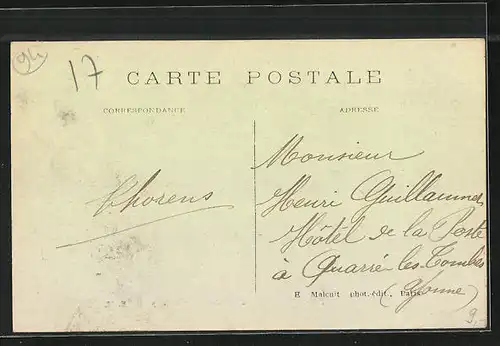 94
17
CARTE POSTALE
CORRESPONDANCE
ADRESSE
Monsieur
Henri Guillaumet
Hôtel de la Poste
à Quarré-les-Tombes
(Yonne)
E. Malcuit phot.-édit., Paris
9.